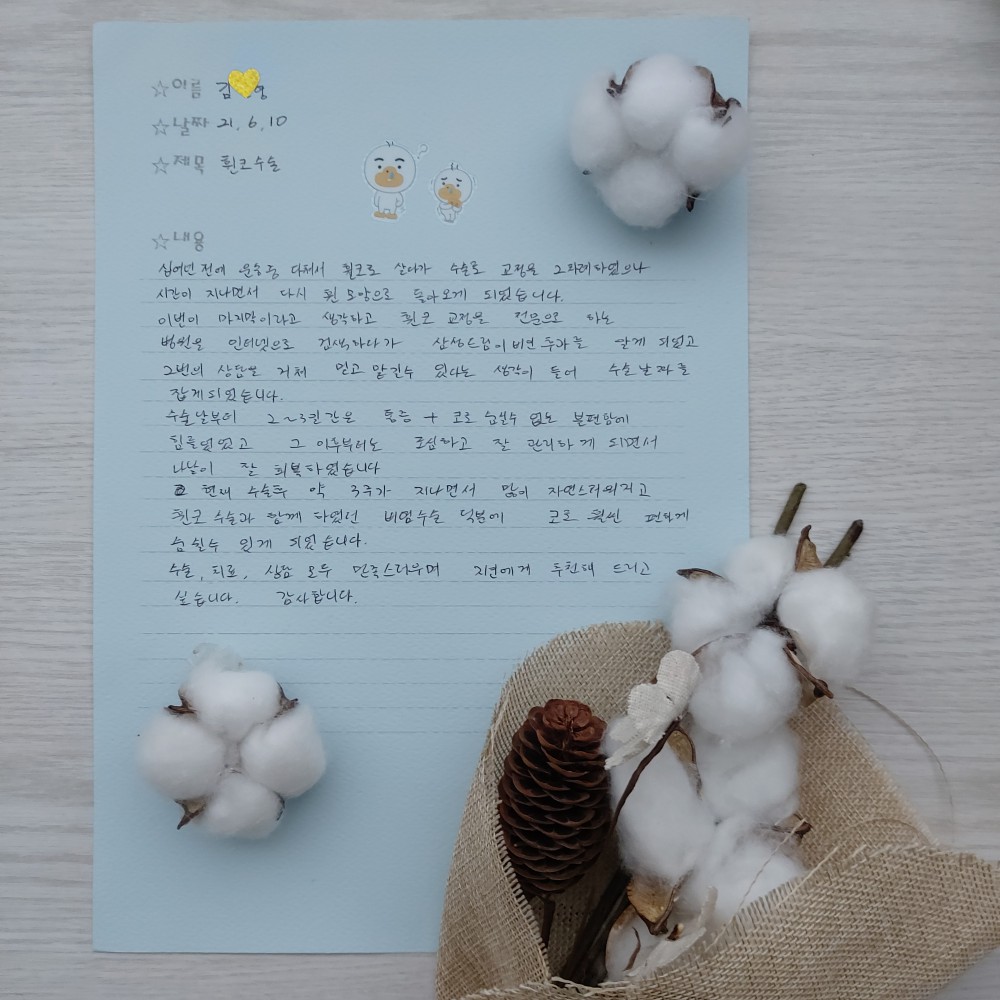 ☆이름 김 영
☆날짜 21.6.10
☆제목 휜코수술
?
☆내용
십여년 전에 운동 중 다쳐서 휜코로 살다가 수술로 교정을 2차례하였으나
시간이 지나면서 다시 휜 모양으로 돌아오게 되었습니다.
이번이 마지막이라고 생각하고 휜코 교정을 전문으로 하는
병원을 인터넷으로 검색하다가 삼성드림이비인후과를 알게 되었고
2번의 상담을 거쳐 믿고 맡길수 있다는 생각이 들어 수술날짜를
잡게되었습니다.
수술날부터 2~3일간은 통증 + 코로 숨쉴수 없는 불편함에
힘들었었고 그 이후부터는 조심하고 잘 관리하게 되면서
나날이 잘 회복하였습니다
현재 수술후 약 3주가 지나면서 많이 자연스러워지고
휜코 수술과 함께 하였던 비염수술 덕분에 코로 훨씬 편하게
숨 쉴수 있게 되었습니다.
수술, 치료, 상담 모두 만족스러우며 지인에게 추천해 드리고
싶습니다. 감사합니다.